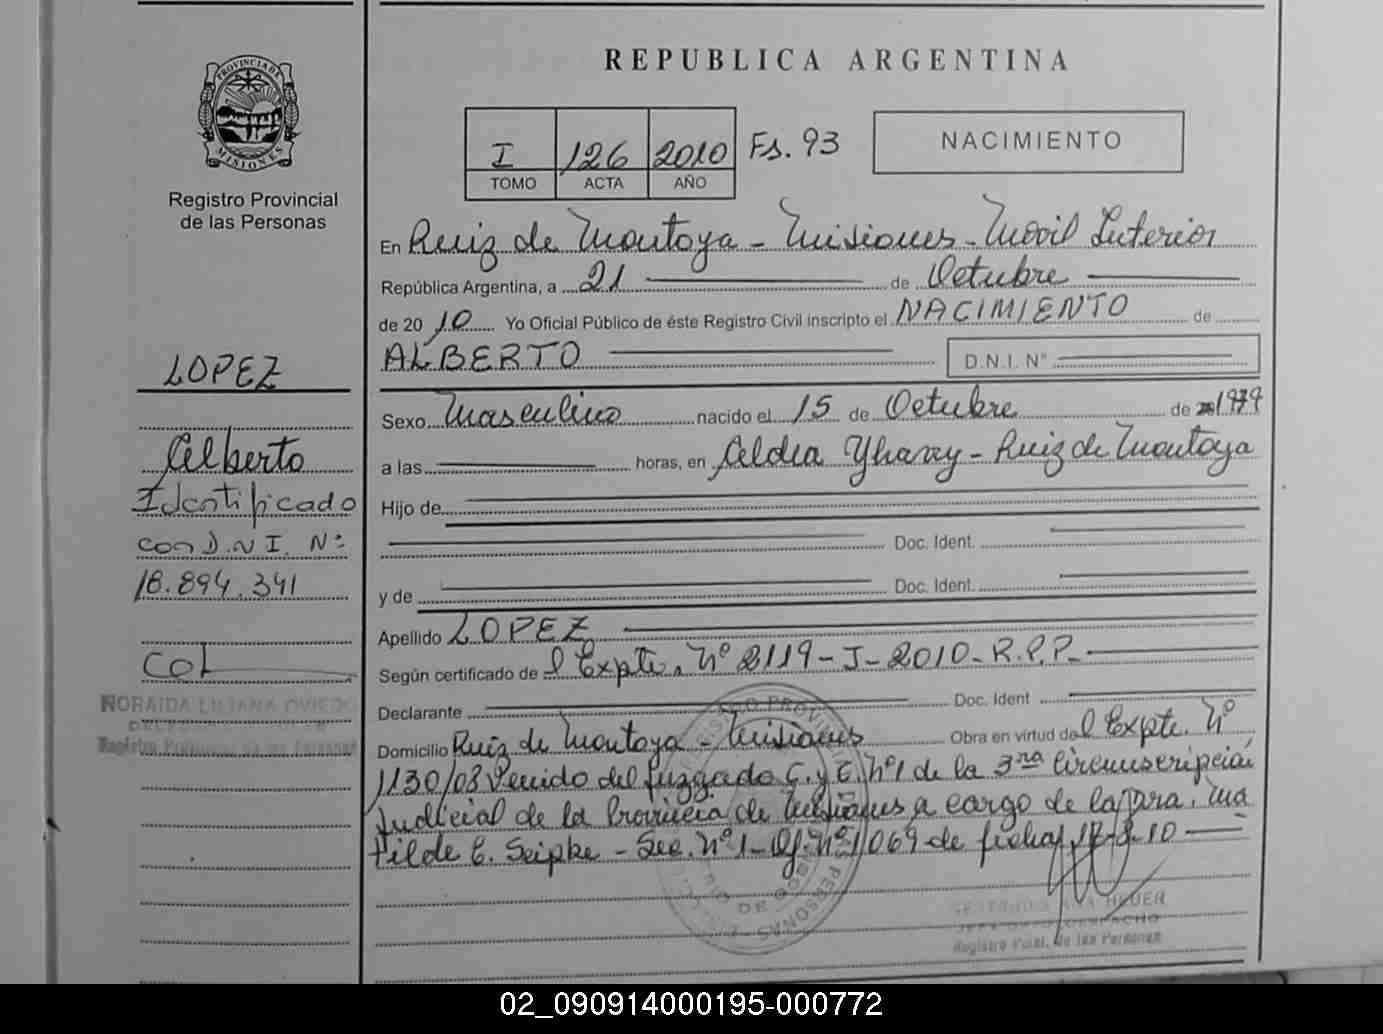 REPUBLICA ARGENTINA
PROVINCIA DE MISIONES
Registro Provincial
de las Personas
I 126 2010 Fs. 93
TOMO ACTA AÑO
NACIMIENTO
En Ruiz de Montoya - Misiones - Movil Interior
República Argentina, a 21 de Octubre
de 20 10 Yo Oficial Público de éste Registro Civil inscripto el NACIMIENTO de
ALBERTO D.N.I. N°
Sexo Masculino nacido el 15 de Octubre de 1979
a las horas, en Aldea Yhavy - Ruiz de Montoya
Hijo de
Doc. Ident.
y de Doc. Ident.
Apellido LOPEZ
Según certificado de el Expte. N° 2119-J-2010-R.P.P.
Declarante Doc. Ident
Domicilio Ruiz de Montoya - Misiones Obra en virtud de el Expte. N°
1130/08 Venido del Juzgado C. y C. N°1 de la 3ra Circunscripción
Judicial de la Provincia de Misiones a cargo de la Dra. Ma
tilde E. Seipke - Sec. N°1 - Of. N° 1069 de fecha
LOPEZ
Alberto
Identificado
con D.N.I. N°
18.894.341
COL
NORAIDA LILIANA OVIEDO
Registro Provincial de las Personas
HEUER
JEFE DPTO DESPACHO
Registro Pcial. de las Personas
02_090914000195-000772